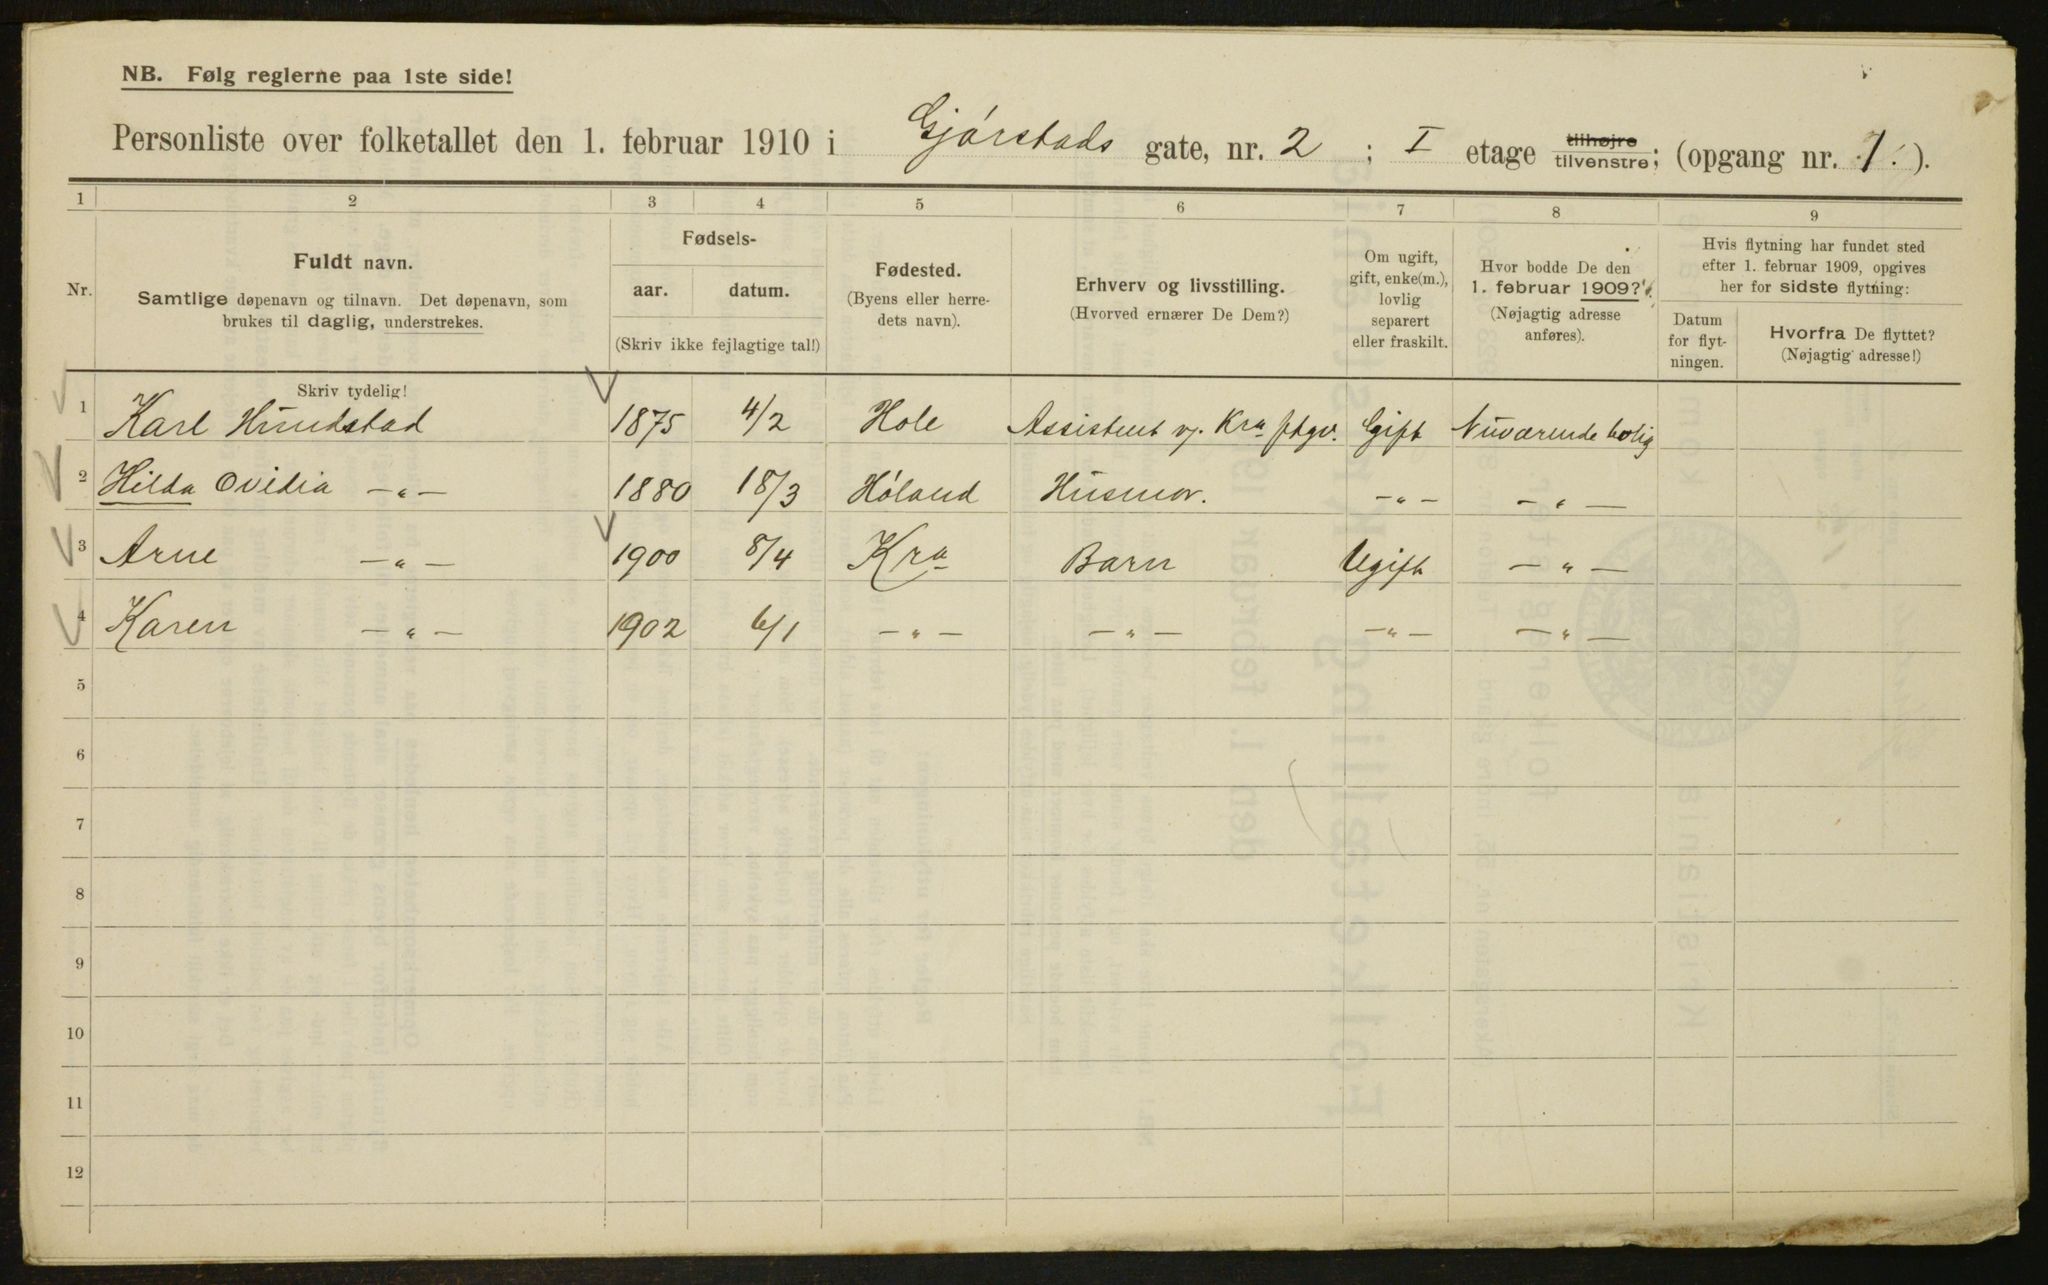 NB. Følg reglerne paa 1ste side!
Personliste over folketallet den 1. februar 1910 i Gjørstads gate, nr. 2 ; I etage tilhøjre tilvenstre; (opgang nr. 1. ).
1 2 3 4 5 6 7 8 9
Nr.
Fuldt navn.
Samtlige døpenavn og tilnavn. Det døpenavn, som
brukes til daglig, understrekes.
Fødsels-
aar. datum.
(Skriv ikke fejlagtige tal!)
Fødested.
(Byens eller herre-
dets navn).
Erhverv og livsstilling.
(Hvorved ernærer De Dem?)
Om ugift,
gift, enke(m.),
lovlig
separert
eller fraskilt.
Hvor bodde De den
1. februar 1909?
(Nøjagtig adresse
anføres).
Hvis flytning har fundet sted
efter 1. februar 1909, opgives
her for sidste flytning:
Datum
for flyt-
ningen.
Hvorfra De flyttet?
(Nøjagtig adresse!)
Skriv tydelig!
1 Karl Hundstad 1875 4/2 Hole Assistent v. Kra ftgv. Gift Nuværende bolig
2 Hilda Ovidia —„— 1880 18/3 Høland Husmor. —„— —„—
3 Arne —„— 1900 8/4 Kra Barn Ugift —„—
4 Karen —„— 1902 6/1 —„— —„— —„— —„—
5
6
7
8
9
10
11
12